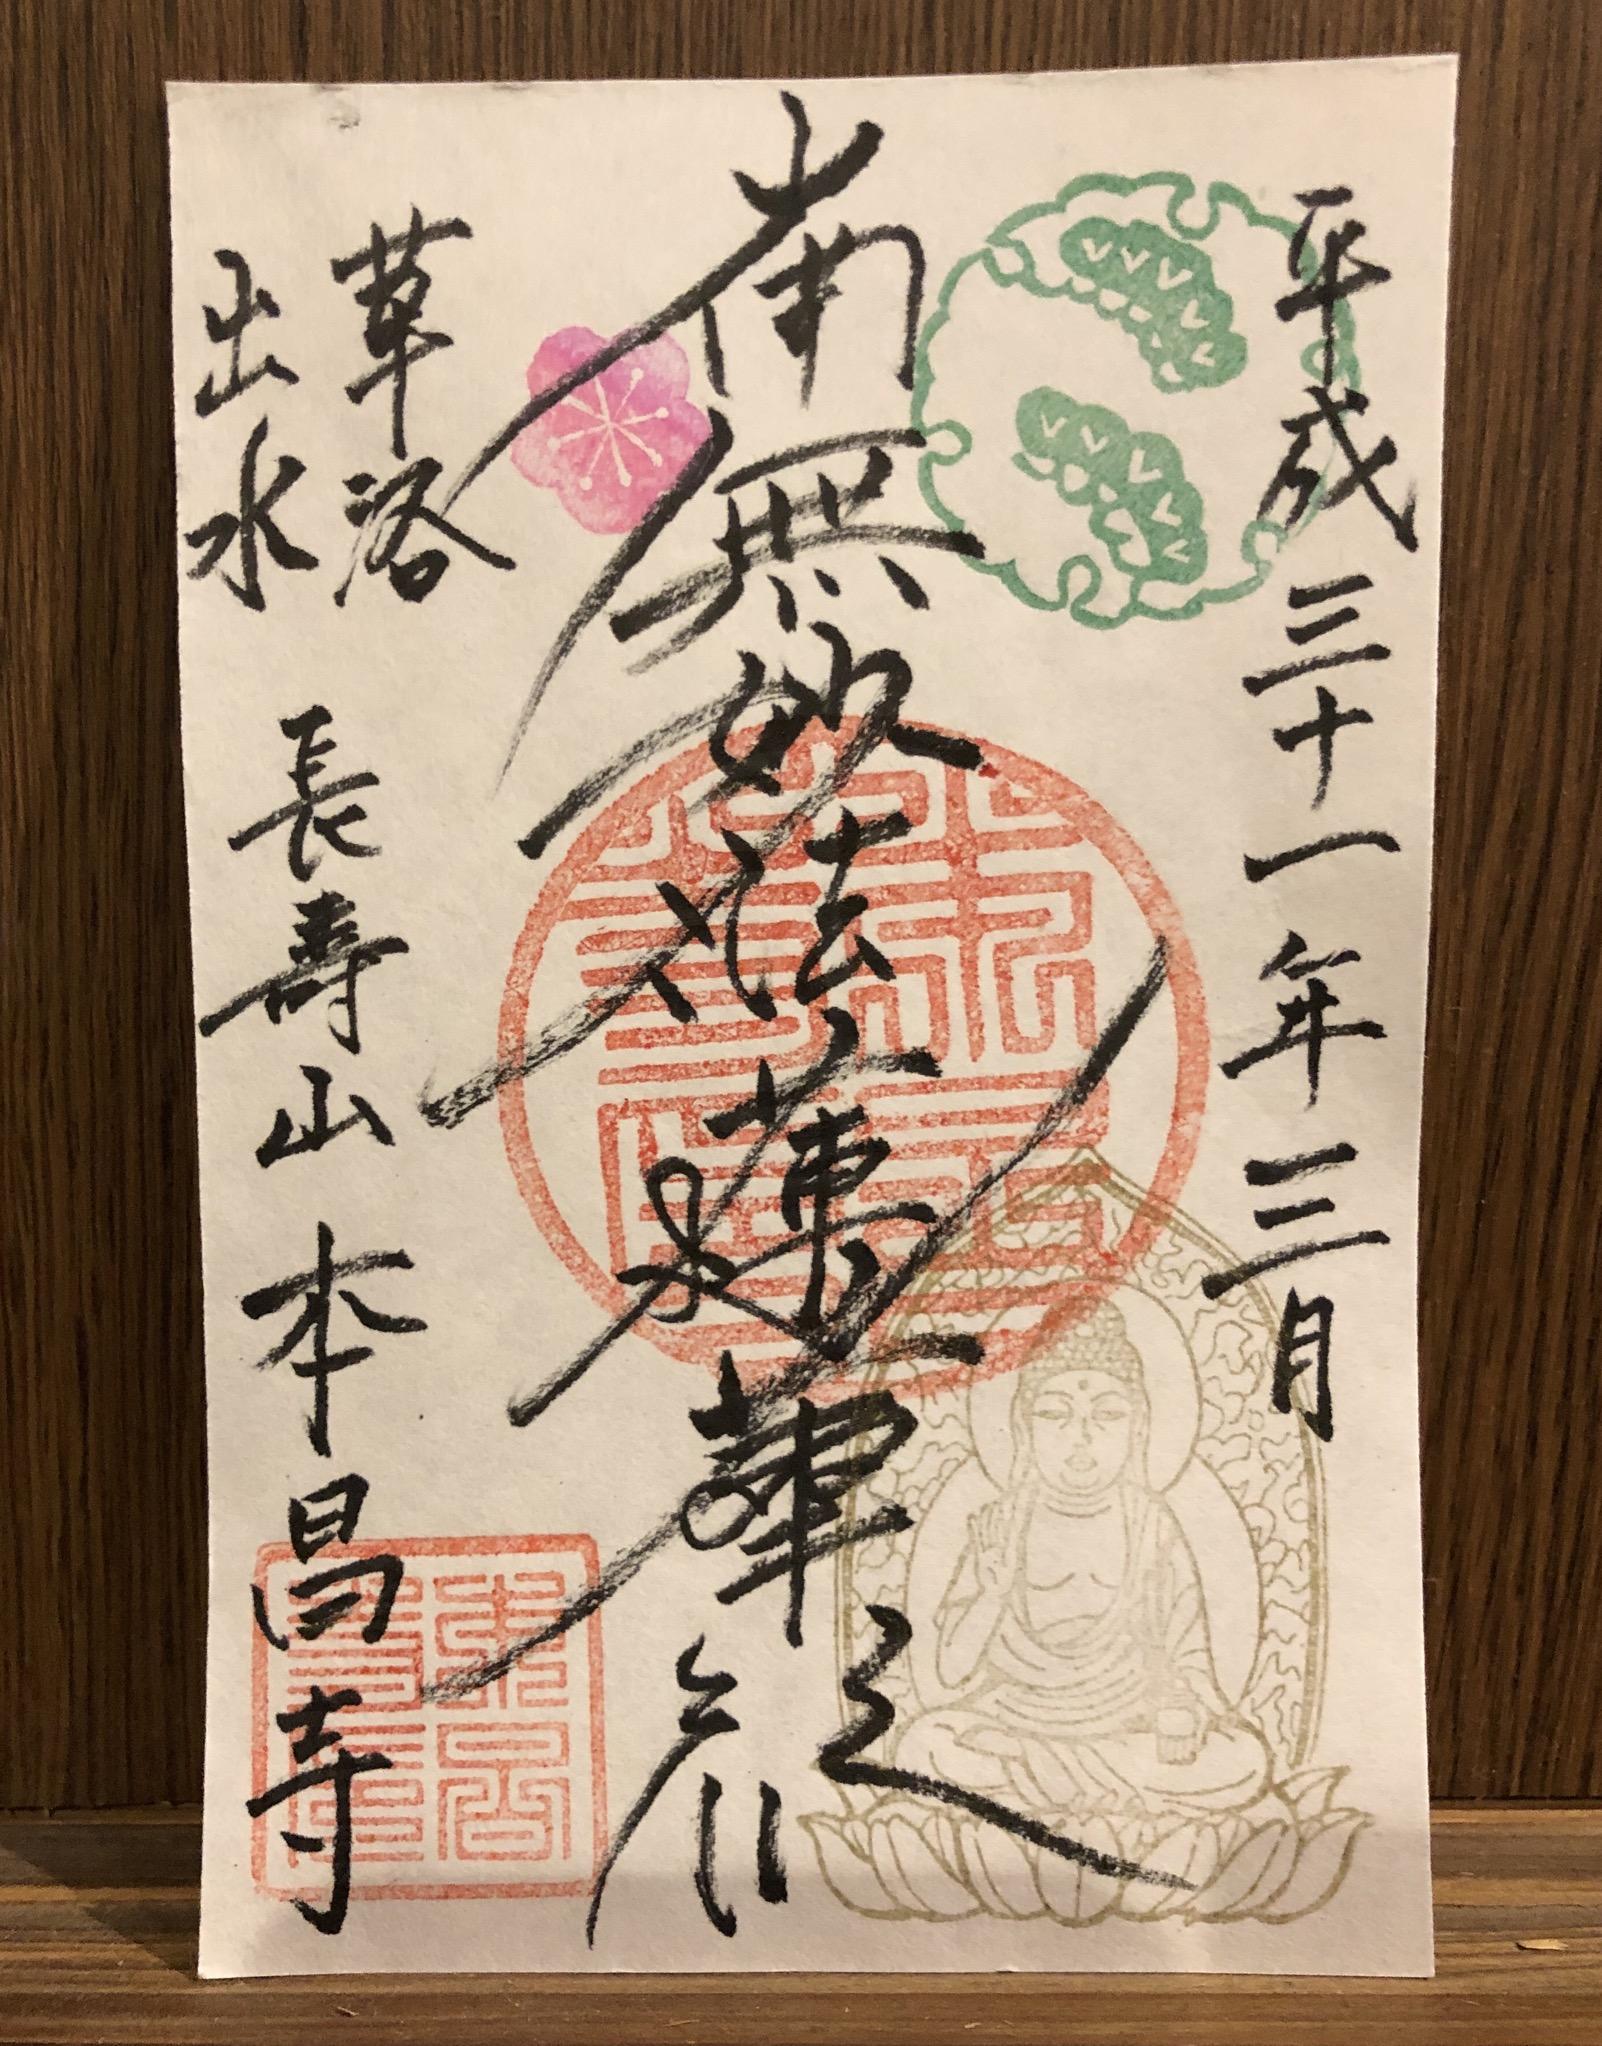 平成三十一年三月
南無妙法蓮華経
華洛
出水
長壽山 本昌寺